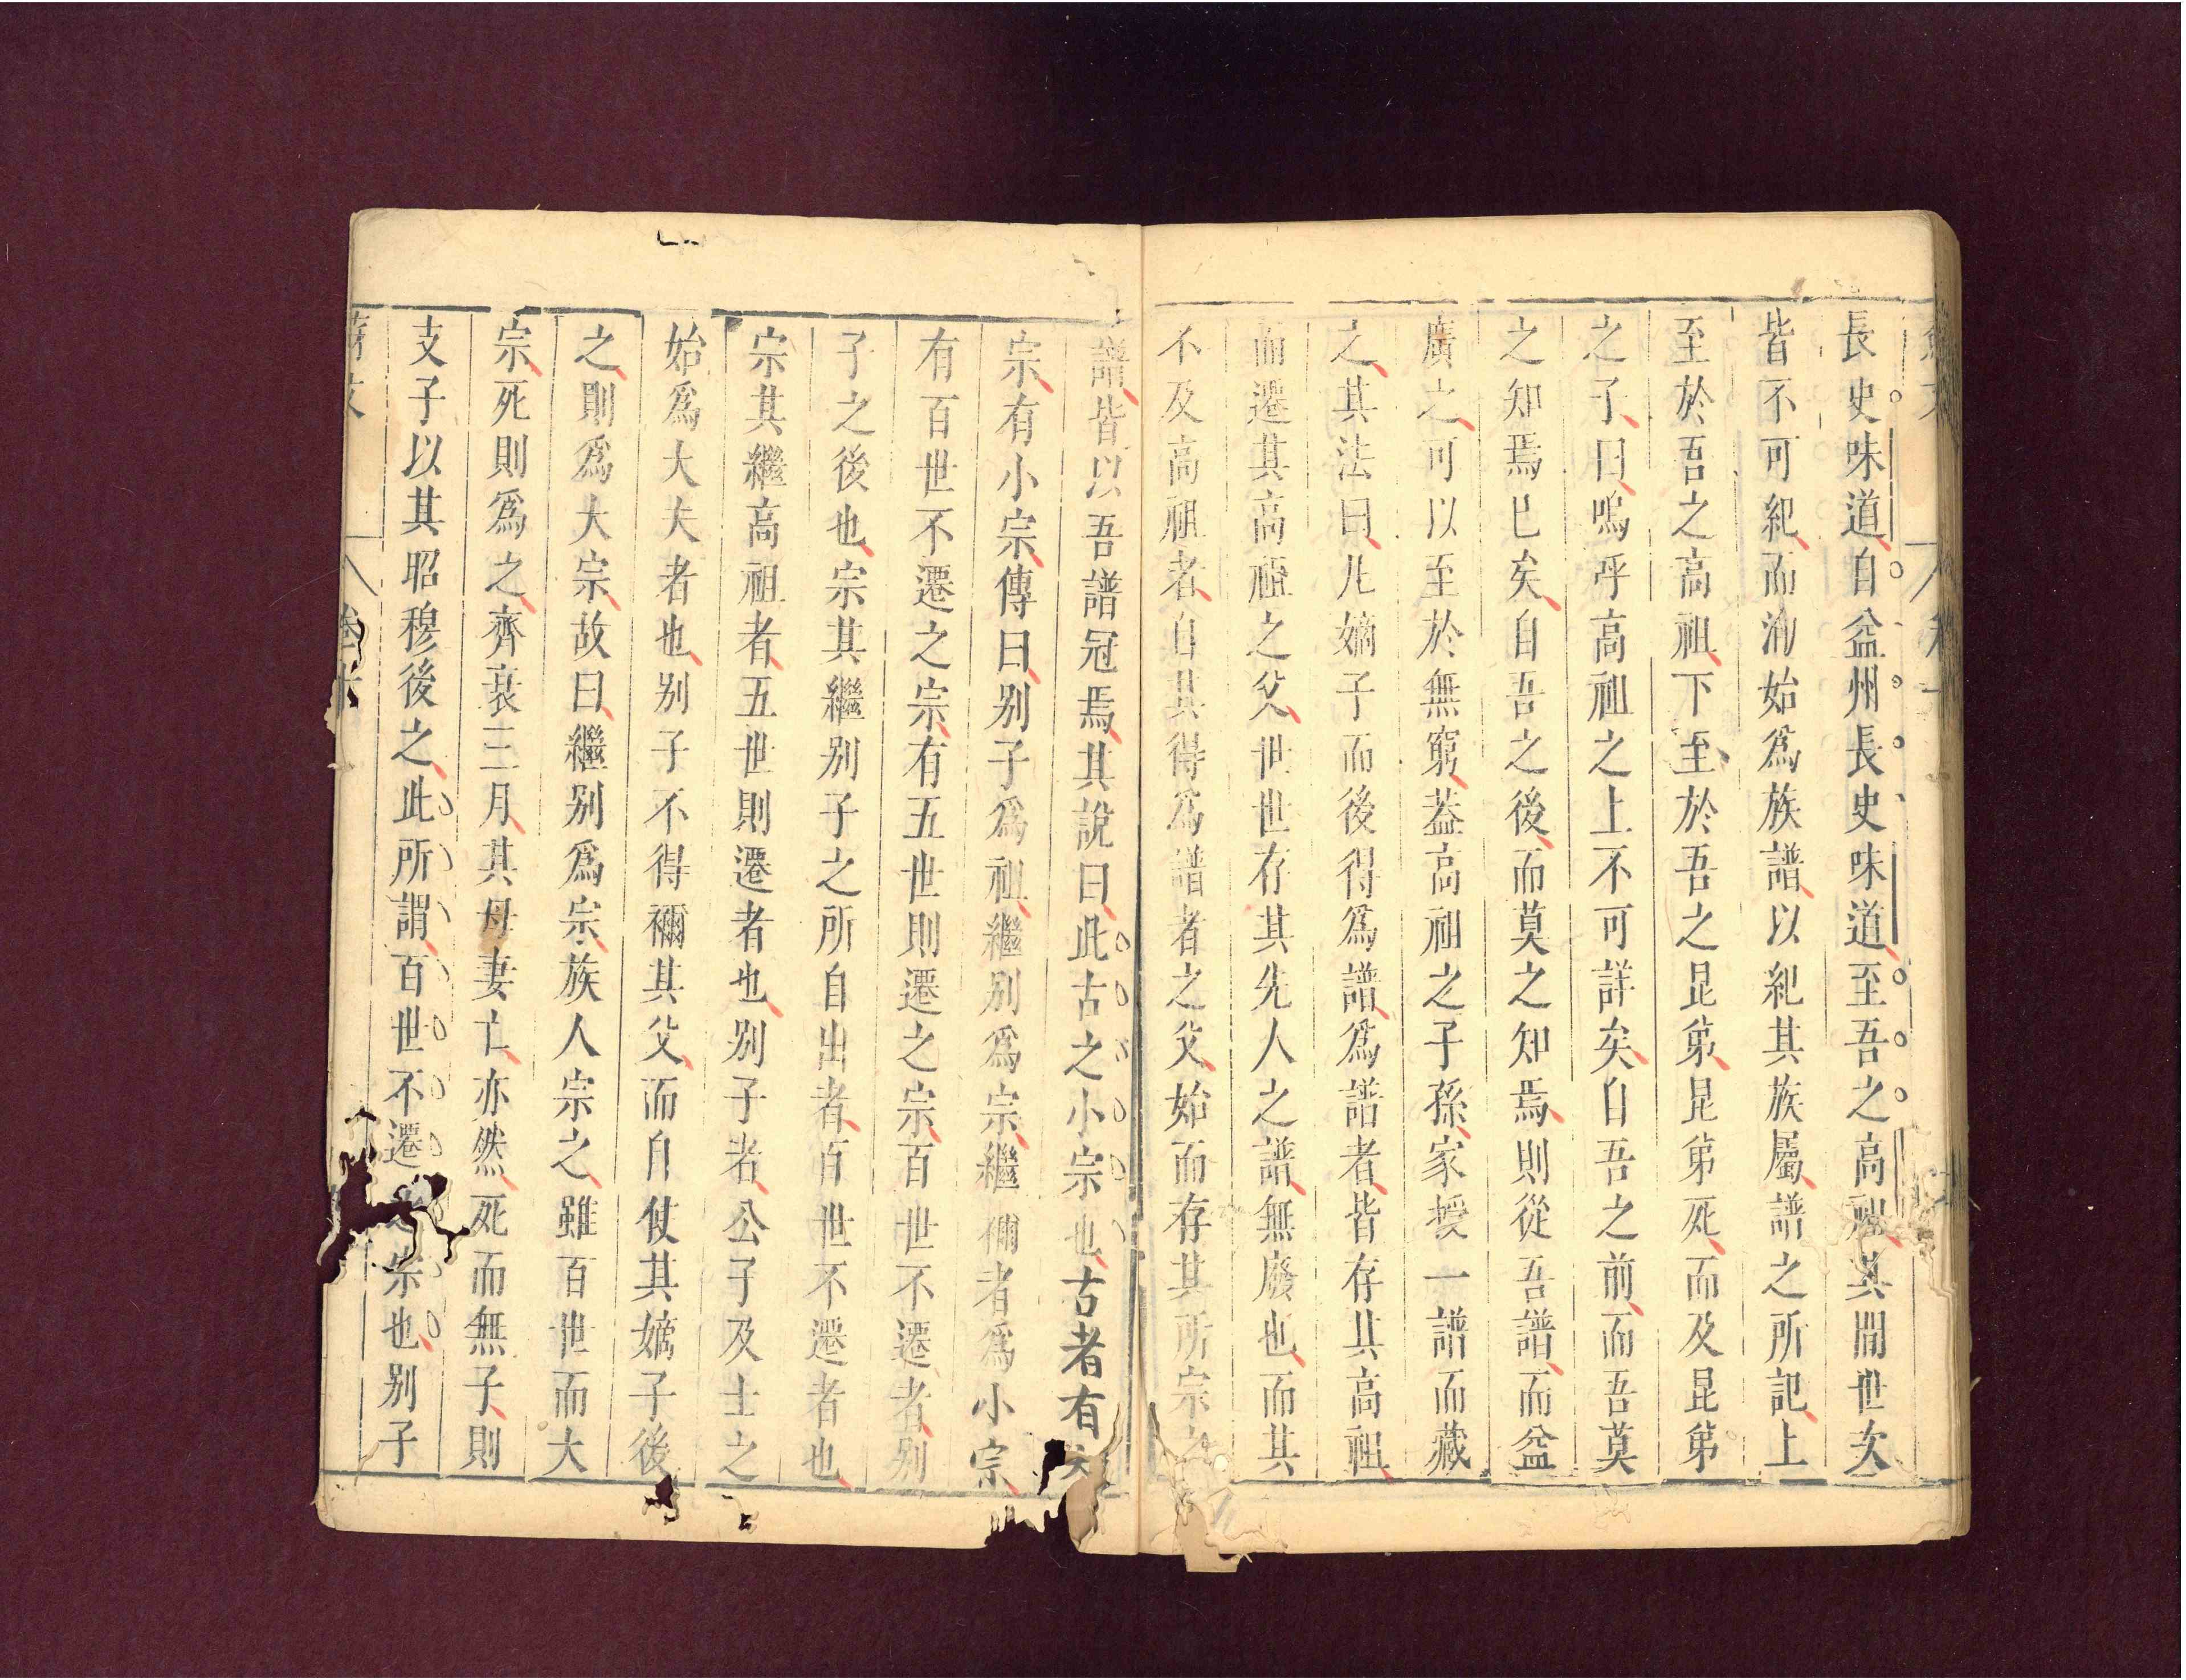 長史味道自益州長史味道至吾之高祖其間世次
皆不可紀而洵始爲族譜以紀其族屬譜之所記上
至於吾之高祖下至於吾之昆弟昆弟死而及昆弟
之子曰嗚呼高祖之上不可詳矣自吾之前而吾莫
之知焉已矣自吾之後而莫之知焉則從吾譜而益
廣之可以至於無窮蓋高祖之子孫家授一譜而藏
之其法曰凡嫡子而後得爲譜爲譜者皆存其高祖
而遷其高祖之父世世存其先人之譜無廢也而其
不及高祖者自其得爲譜者之父始而存其所宗之
譜皆以吾譜冠焉其說曰此古之小宗也古者有大
宗有小宗傳曰別子爲祖繼別爲宗繼禰者爲小宗
有百世不遷之宗有五世則遷之宗百世不遷者別
子之後也宗其繼別子之所自出者百世不遷者也
宗其繼高祖者五世則遷者也別子者公子及士之
始爲大夫者也別子不得禰其父而自使其嫡子後
之則爲大宗故曰繼別爲宗族人宗之雖百世而大
宗死則爲之齊衰三月其母妻亡亦然死而無子則
支子以其昭穆後之此所謂百世不遷之宗也別子